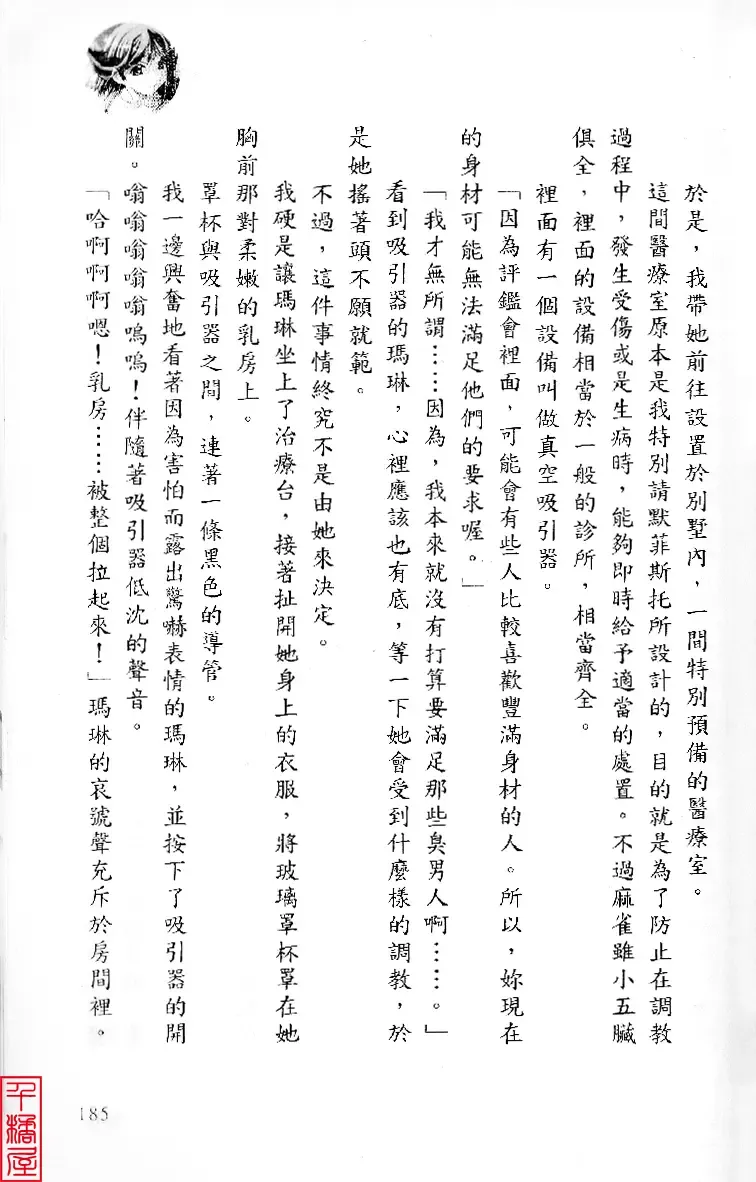 於是，我帶她前往設置於別墅內，一間特別預備的醫療室。
這間醫療室原本是我特別請默菲斯托所設計的，目的就是為了防止在調教
過程中，發生受傷或是生病時，能夠即時給予適當的處置。不過麻雀雖小五臟
俱全，裡面的設備相當於一般的診所，相當齊全。
裡面有一個設備叫做真空吸引器。
「因為評鑑會裡面，可能會有些人比較喜歡豐滿身材的人。所以，妳現在
的身材可能無法滿足他們的要求喔。」
「我才無所謂……因為，我本來就沒有打算要滿足那些臭男人啊……。」
看到吸引器的瑪琳，心裡應該也有底，等一下她會受到什麼樣的調教，於
是她搖著頭不願就範。
不過，這件事情終究不是由她來決定。
我硬是讓瑪琳坐上了治療台，接著扯開她身上的衣服，將玻璃罩杯罩在她
胸前那對柔嫩的乳房上。
罩杯與吸引器之間，連著一條黑色的導管。
我一邊興奮地看著因為害怕而露出驚嚇表情的瑪琳，並按下了吸引器的開
關。嗡嗡嗡嗡嗡嗚嗚！伴隨著吸引器低沈的聲音。
「哈啊啊啊嗯！乳房……被整個拉起來！」瑪琳的哀號聲充斥於房間裡。
185
千橘屋